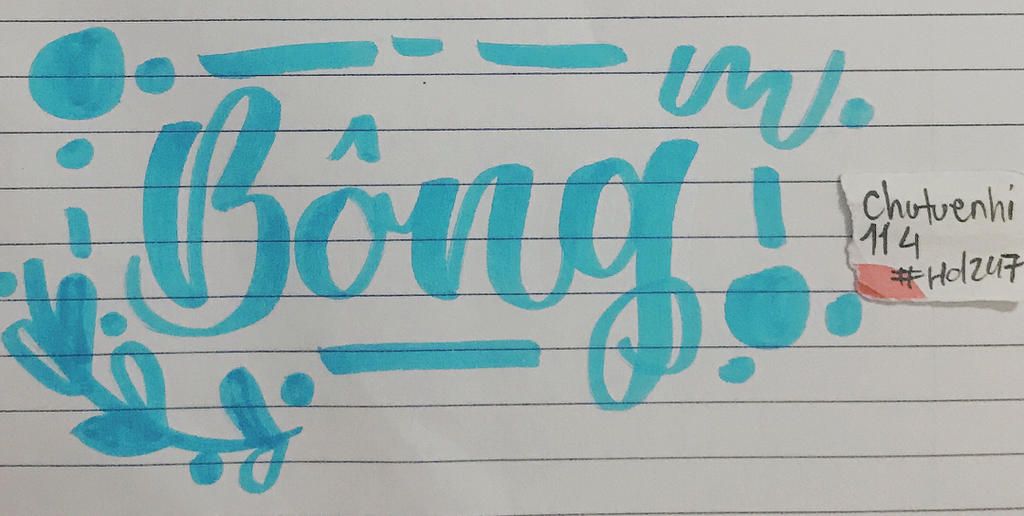 Bông
Chutuenhi
114
#Hd247